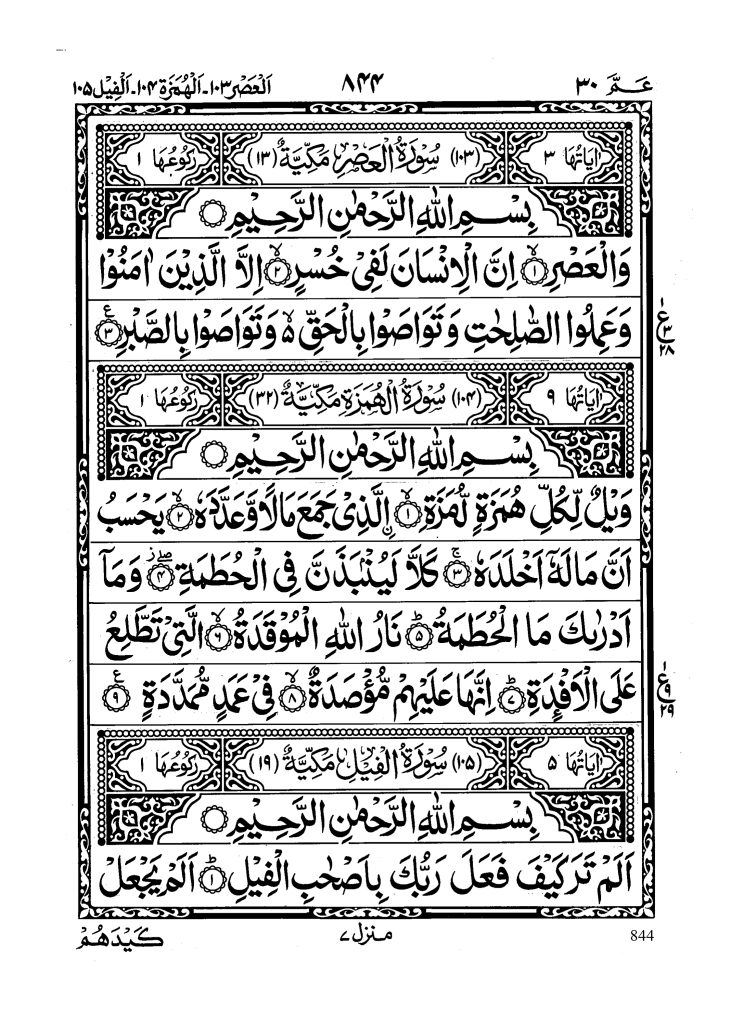 عَمَّ ۳۰ ۸۴۴ اَلْعَصْر ۱۰۳۔اَلْهُمَزَة ۱۰۴۔اَلْفِيْل ۱۰۵
اٰيَاتُهَا ۳ (۱۰۳) سُوْرَةُ الْعَصْرِ مَكِّيَّةٌ (۱۳) رُكُوْعُهَا ۱
بِسْمِ اللّٰهِ الرَّحْمٰنِ الرَّحِيْمِ
وَالْعَصْرِ ۙ‏﴿۱﴾ اِنَّ الْاِنْسَانَ لَفِىْ خُسْرٍ ۙ‏﴿۲﴾ اِلَّا الَّذِيْنَ اٰمَنُوْا
وَعَمِلُوا الصّٰلِحٰتِ وَتَوَاصَوْا بِالْحَقِّ ۙ۬ وَتَوَاصَوْا بِالصَّبْرِ ﴿۳﴾ ع
ع ۳ ۲۸
اٰيَاتُهَا ۹ (۱۰۴) سُوْرَةُ الْهُمَزَةِ مَكِّيَّةٌ (۳۲) رُكُوْعُهَا ۱
بِسْمِ اللّٰهِ الرَّحْمٰنِ الرَّحِيْمِ
وَيْلٌ لِّكُلِّ هُمَزَةٍ لُّمَزَةِ ۙ‏﴿۱﴾ اۨلَّذِىْ جَمَعَ مَالًا وَّعَدَّدَهٗ ۙ‏﴿۲﴾ يَحْسَبُ
اَنَّ مَالَهٗۤ اَخْلَدَهٗ ۚ‏﴿۳﴾ كَلَّا لَيُنْۢبَذَنَّ فِى الْحُطَمَةِ ۖ﴿۴﴾ وَمَاۤ
اَدْرٰىكَ مَا الْحُطَمَةُ ؕ‏﴿۵﴾ نَارُ اللّٰهِ الْمُوْقَدَةُ ۙ‏﴿۶﴾ الَّتِىْ تَطَّلِعُ
عَلَى الْاَفْـِٕدَةِ ؕ‏﴿۷﴾ اِنَّهَا عَلَيْهِمْ مُّؤْصَدَةٌ ۙ‏﴿۸﴾ فِىْ عَمَدٍ مُّمَدَّدَةٍ ﴿۹﴾ ع
ع ۹ ۲۹
اٰيَاتُهَا ۵ (۱۰۵) سُوْرَةُ الْفِيْلِ مَكِّيَّةٌ (۱۹) رُكُوْعُهَا ۱
بِسْمِ اللّٰهِ الرَّحْمٰنِ الرَّحِيْمِ
اَلَمْ تَرَ كَيْفَ فَعَلَ رَبُّكَ بِاَصْحٰبِ الْفِيْلِ ؕ‏﴿۱﴾ اَلَمْ يَجْعَلْ
844 منزل ۷ كَيْدَهُمْ